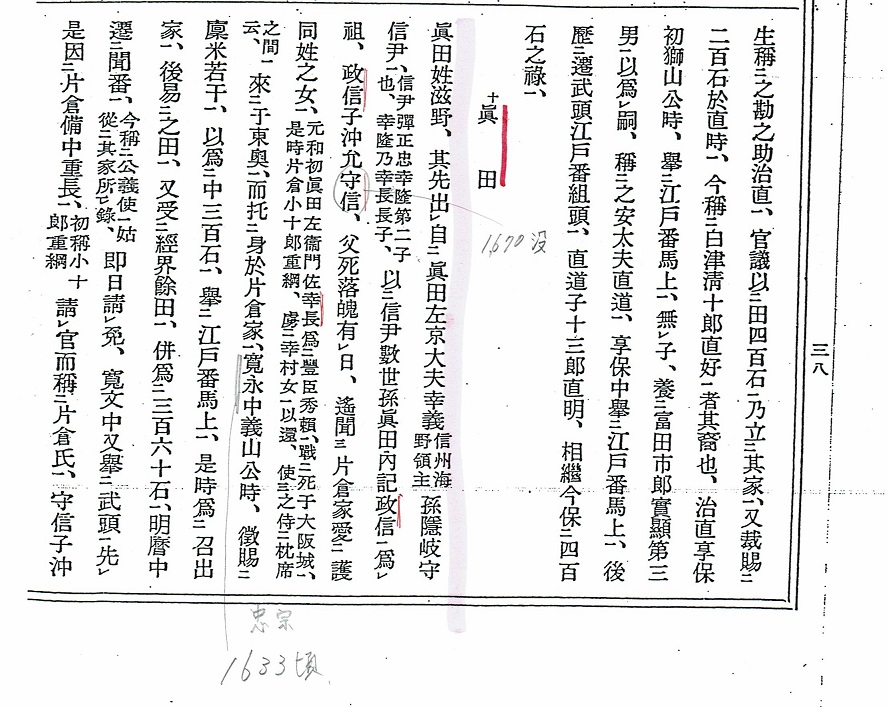 三八
生稱㆓之勘之助治直㆒、官議以㆓田四百石㆒乃立㆓其家㆒、又裁賜㆓
二百石於直時㆒、今稱㆓白津淸十郎直好㆒者其裔也、治直享保
初獅山公時、擧㆓江戶番馬上㆒、無㆑子、養㆓富田市郎實顯第三
男㆒以爲㆑嗣、稱㆓之安太夫直道㆒、享保中擧㆓江戶番馬上㆒、後
歷㆓遷武頭江戶番組頭㆒、直道子十三郎直明、相繼今保㆓四百
石之祿㆒、
十眞田
1670没
眞田姓滋野、其先出㆑自㆓眞田左京大夫幸義信州海野領主孫隱岐守
信尹㆒、信尹彈正忠幸隆第二子也、幸隆乃幸長長子、以㆓信尹數世孫眞田內記政信㆒爲㆑
祖、政信子沖允守信、父死落魄有㆑日、遙聞㆘片倉家愛㆓護
同姓之女㆒、元和初眞田左衞門佐幸長爲㆓豐臣秀賴㆒、戰㆓死于大阪城㆒、是時片倉小十郎重綱、虜㆓幸村女㆒以還、使㆔之侍㆓枕席
之間㆒云、來㆓于東奧㆒、而托㆓身於片倉家㆒、寬永中義山公時、徵賜㆓
廩米若干㆒、以爲㆓中三百石㆒、擧㆓江戶番馬上㆒、是時爲㆓召出
家㆒、後易㆓之田㆒、又受㆓經界餘田㆒、併爲㆓三百六十石㆒、明曆中
遷㆓聞番㆒、今稱㆓公義使㆒姑從㆓其家所㆑錄、卽日請㆑免、寬文中又擧㆓武頭㆒、先㆑
是因㆓片倉備中重長㆒、初稱小十郎重綱請㆑官而稱㆓片倉氏㆒、守信子沖
忠宗
1633頃